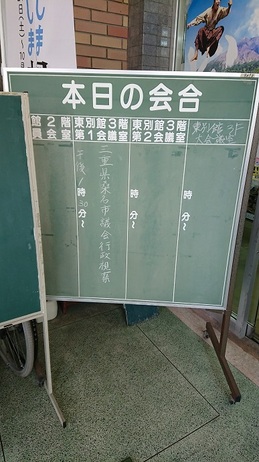 本日の会合
東別館3F
大会議室
東別館3階
第2会議室
時 分~
東別館3階
第1会議室
時 分~
三重県桑名市議会行政視察
午後1時30分~
館2階
員会室